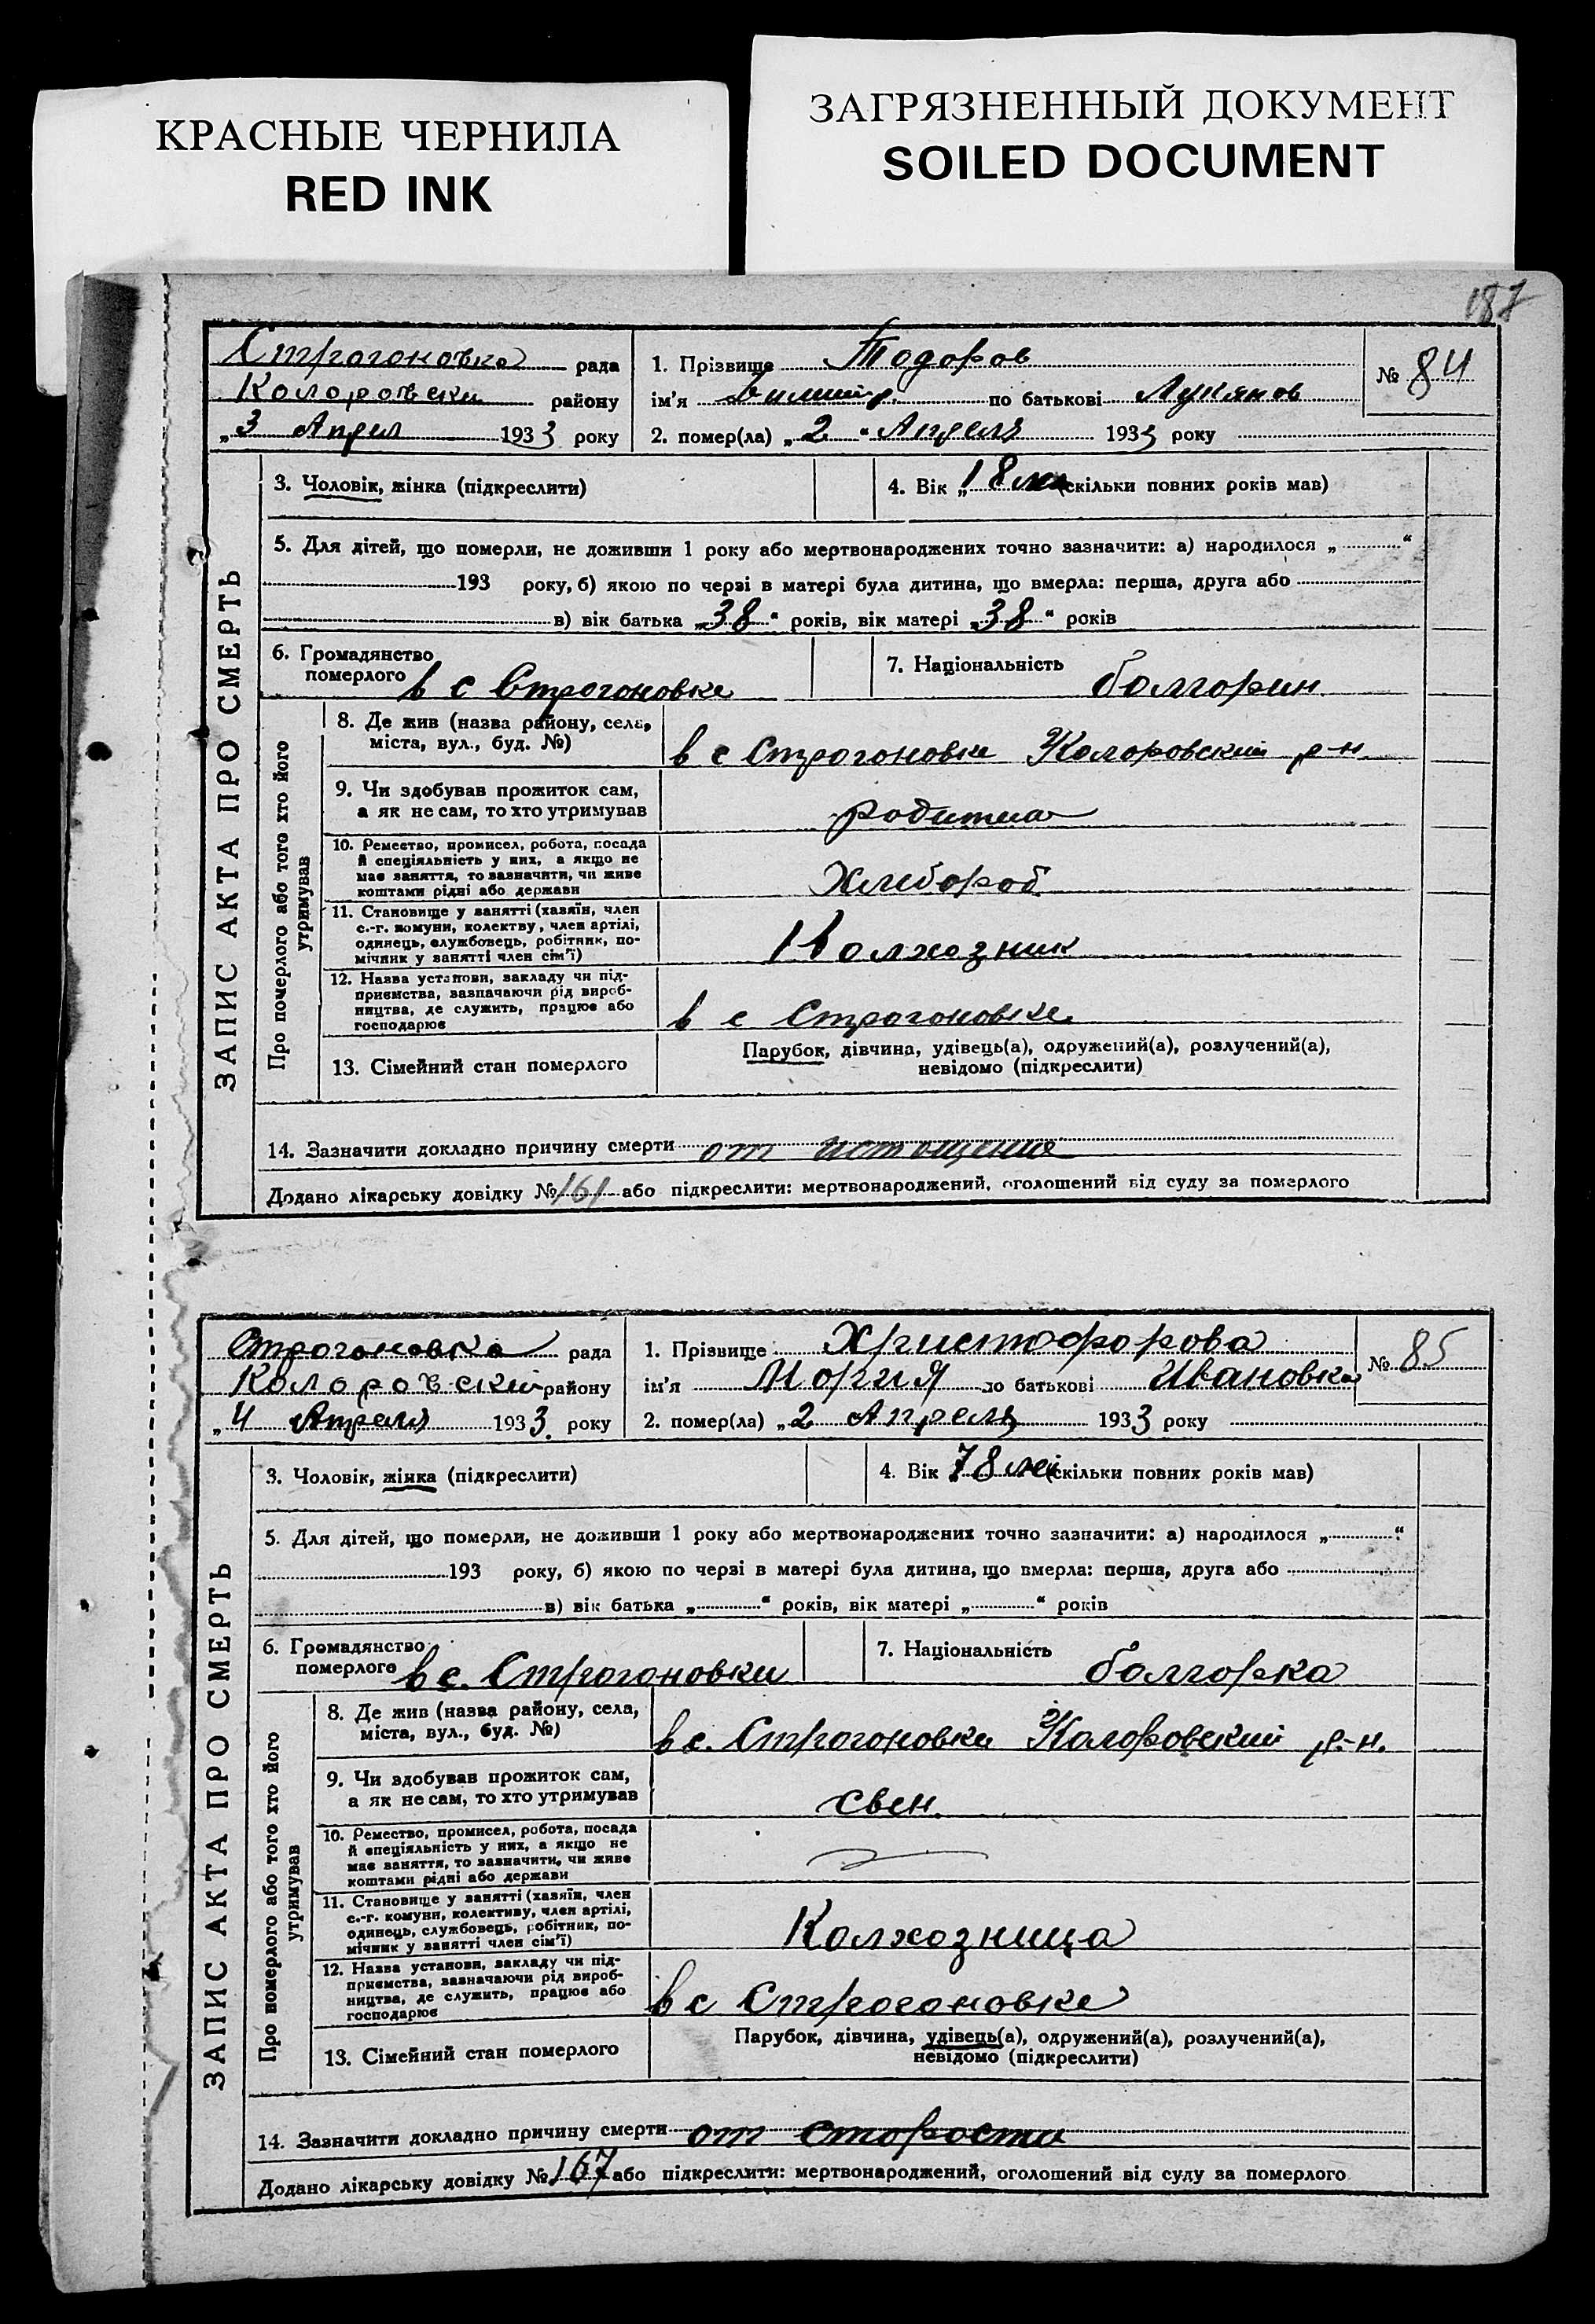 КРАСНЫЕ ЧЕРНИЛА
RED INK
ЗАГРЯЗНЕННЫЙ ДОКУМЕНТ
SOILED DOCUMENT
187
Строгоновка рада
Коларовски району
„3 Апрел 1933 року
1. Прізвище Тодоров
ім'я по батькові Лукянов
2. помер(ла) „2“ Апреля 1933 року
№ 84
ЗАПИС АКТА ПРО СМЕРТЬ
3. Чоловік, жінка (підкреслити)
4. Вік „18 ле (скільки повних років мав)
5. Для дітей, що померли, не доживши 1 року або мертвонароджених точно зазначити: а) народилося „ “
193 року, б) якою по черзі в матері була дитина, що вмерла: перша, друга або
в) вік батька „38“ років, вік матері „38“ років
6. Громадянство
померлого в с Строгоновке
7. Національність болгорин
Про померлого або того хто його
утримував
8. Де жив (назва району, села,
міста, вул., буд. №)
в с Строгоновки Коларовский р-н
9. Чи здобував прожиток сам,
а як не сам, то хто утримував
10. Ремество, промисел, робота, посада
й спеціяльність у них, а якщо не
має заняття, то зазначити, чи живе
коштами рідні або держави
Хлебороб
11. Становище у занятті (хазяїн, член
с.-г. комуни, колектву, член артілі,
одинець, службовець, робітник, по-
мічник у занятті член сім'ї)
Колхозник
12. Назва установи, закладу чи під-
приємства, зазначаючи рід вироб-
ництва, де служить, працює або
господарює
в с Строгоновке
13. Сімейний стан померлого
Парубок, дівчина, удівець(а), одружений(а), розлучений(а),
невідомо (підкреслити)
14. Зазначити докладно причину смерти от истощения
Додано лікарську довідку № 161 або підкреслити: мертвонароджений, оголошений від суду за померлого
Строгоновка рада
Коларовский району
„4 Апреля 1933 року
1. Прізвище Христофорова
ім'я Мория по батькові Ивановка
2. помер(ла) „2 Апреля 1933 року
№ 85
ЗАПИС АКТА ПРО СМЕРТЬ
3. Чоловік, жінка (підкреслити)
4. Вік 78 ле (скільки повних років мав)
5. Для дітей, що померли, не доживши 1 року або мертвонароджених точно зазначити: а) народилося „ “
193 року, б) якою по черзі в матері була дитина, що вмерла: перша, друга або
в) вік батька „ “ років, вік матері „ “ років
6. Громадянство
померлого в с. Строгоновки
7. Національність болгорка
Про померлого або того хто його
утримував
8. Де жив (назва району, села,
міста, вул., буд. №)
в с. Строгоновки Коларовский р-н.
9. Чи здобував прожиток сам,
а як не сам, то хто утримував
10. Ремество, промисел, робота, посада
й спеціяльність у них, а якщо не
має заняття, то зазначити, чи живе
коштами рідні або держави
11. Становище у занятті (хазяїн, член
с.-г. комуни, колективу, член артілі,
одинець, службовець, робітник, по-
мічник у занятті член сім'ї)
Колхозница
12. Назва установи, закладу чи під-
приємства, зазначаючи рід вироб-
ництва, де служить, працює або
господарює
в с Строгоновке
13. Сімейний стан померлого
Парубок, дівчина, удівець(а), одружений(а), розлучений(а),
невідомо (підкреслити)
14. Зазначити докладно причину смерти от старости
Додано лікарську довідку № 167 або підкреслити: мертвонароджений, оголошений від суду за померлого